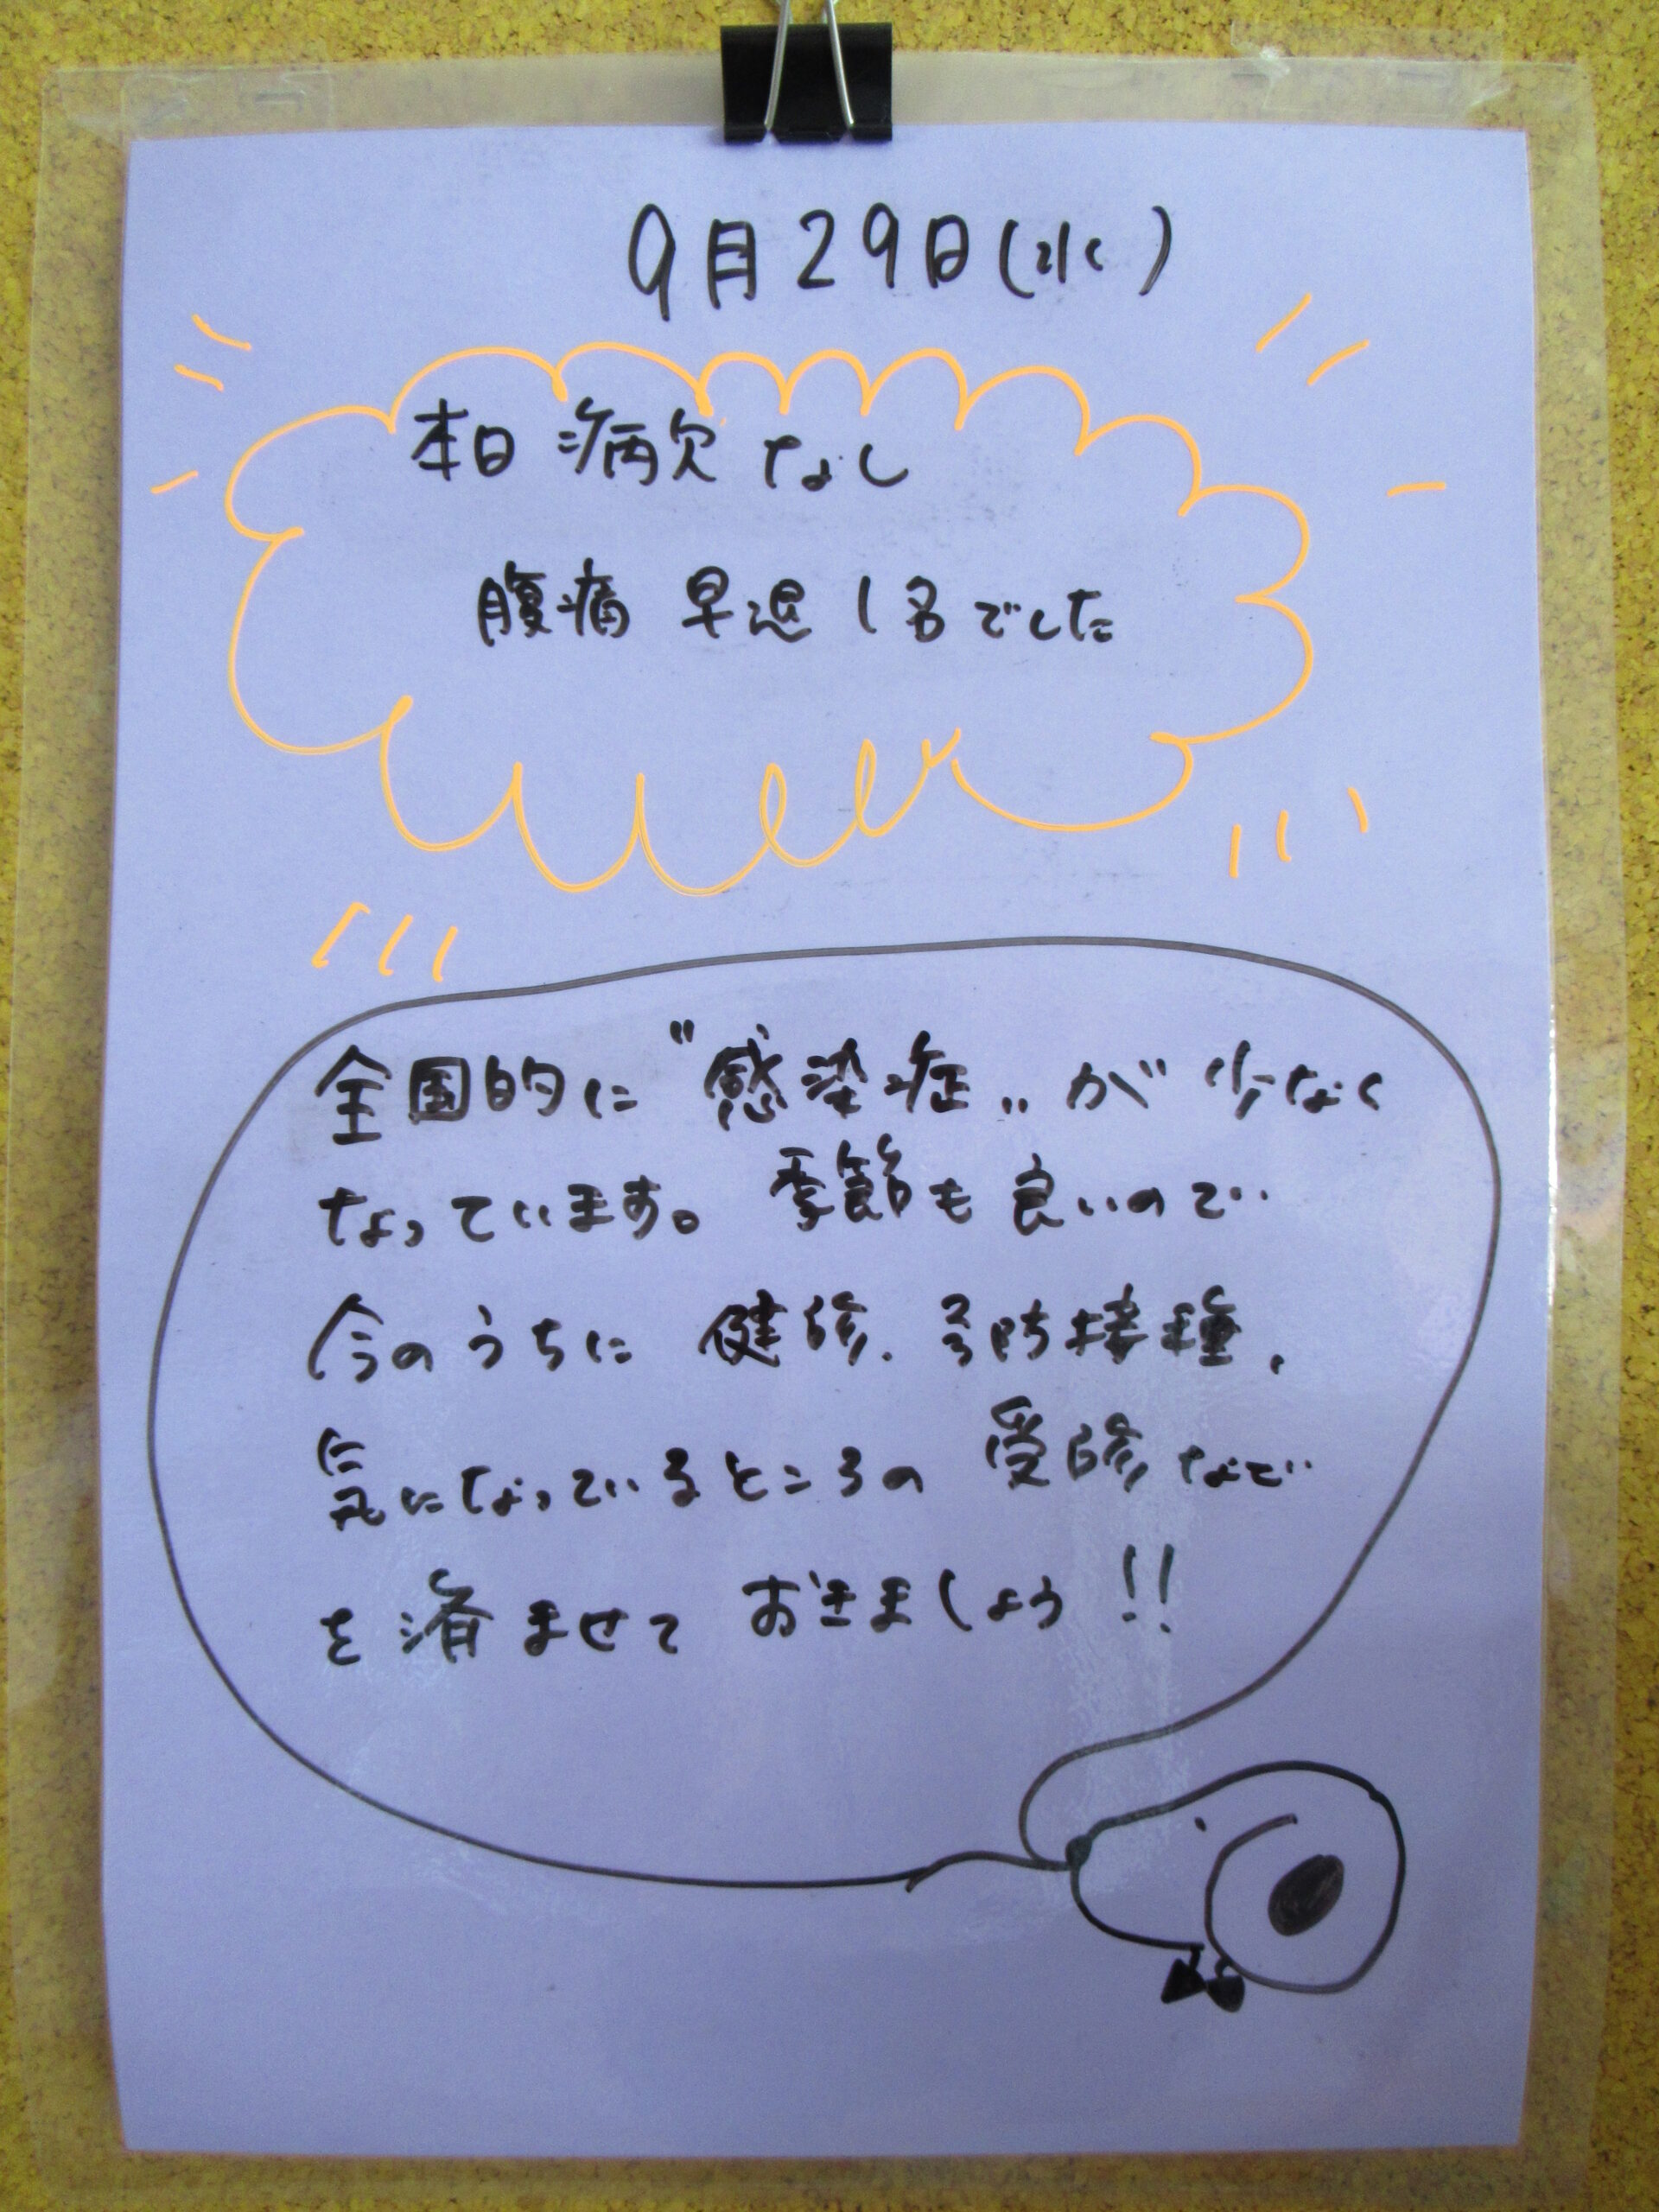 9月29日(水)
本日 病欠 なし
腹痛 早退 1名でした
全国的に "感染症" が 少なく
なっています。 季節も良いので
今のうちに 健診、予防接種、
気になっているところの 受診など
を済ませて おきましょう!!